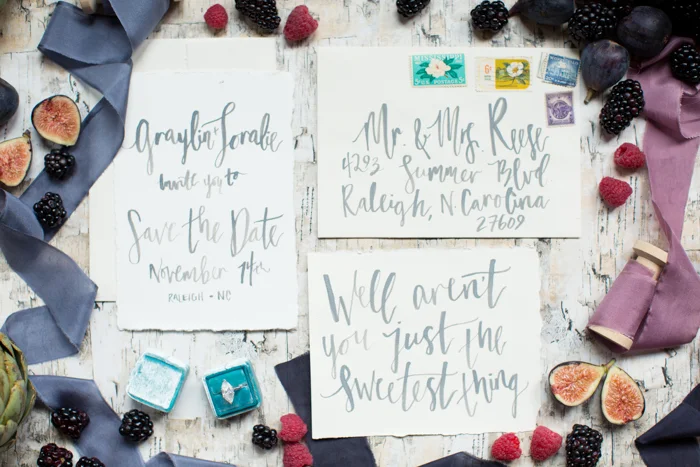 Graylin + Loralie
invite you to
Save the Date
November 14th
RALEIGH - NC
Mr. & Mrs. Reese
4293 Summer Blvd
Raleigh, N. Carolina
27609
Well aren't
you just the
sweetest thing